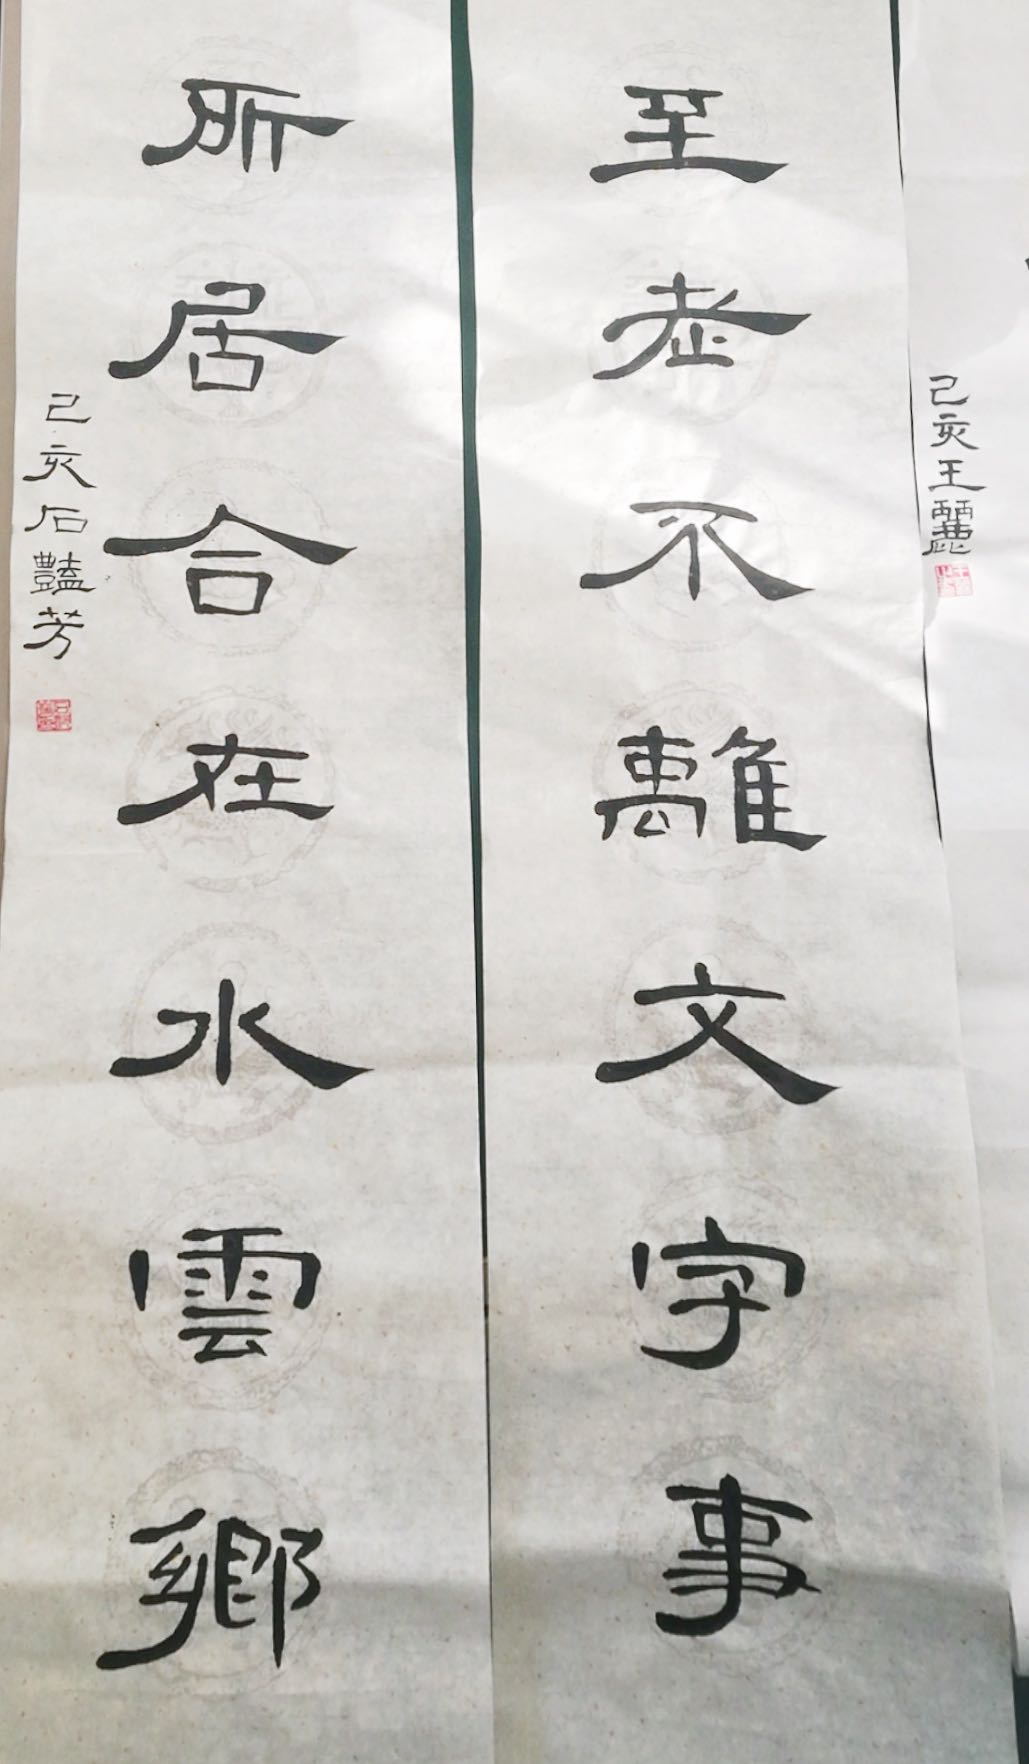 己亥王麗
至老不離文字事
所居合在水雲鄉
己亥石豔芳